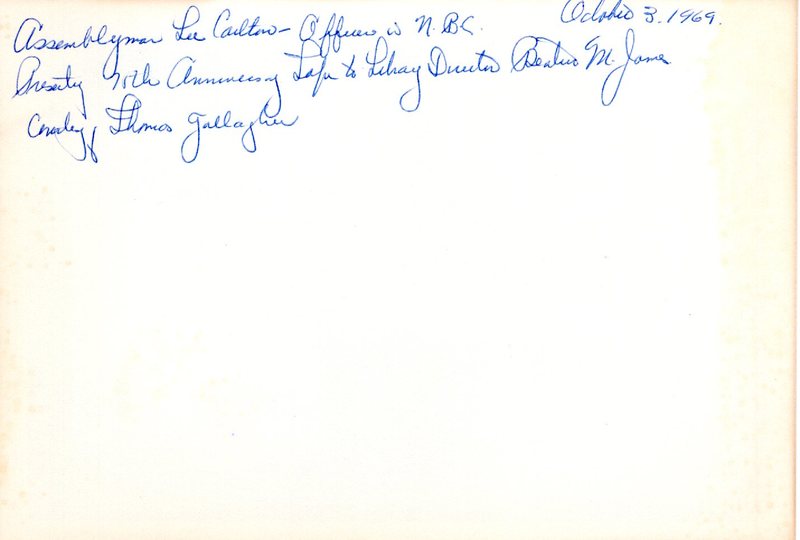 Assemblyman Lee Carlton - Officer in N.B.C. October 3, 1969.
Presenting 75th Anniversary Tape to Library Director Beatrice M. James
Courtesy Thomas Gallagher